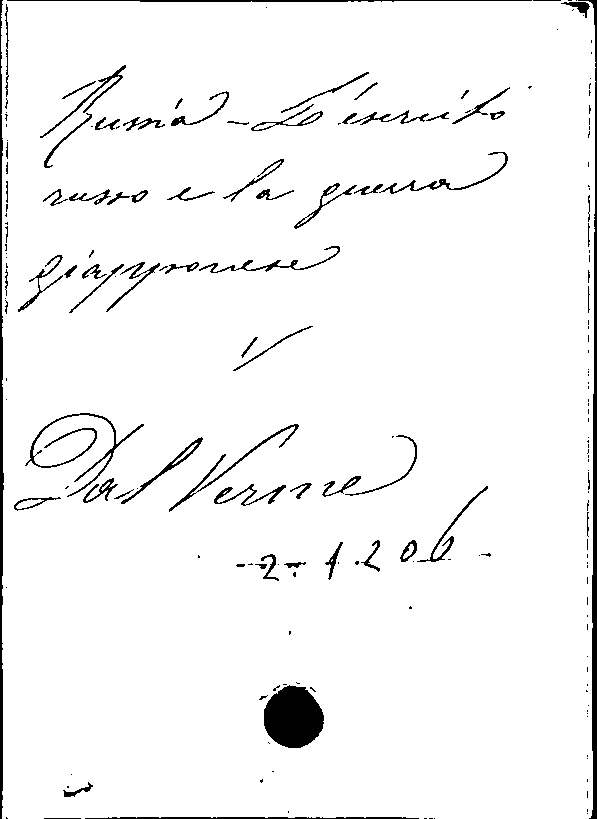 Russia - L'esercito
russo e la guerra
giapponese
V
Dal Verme
-2-1.206-